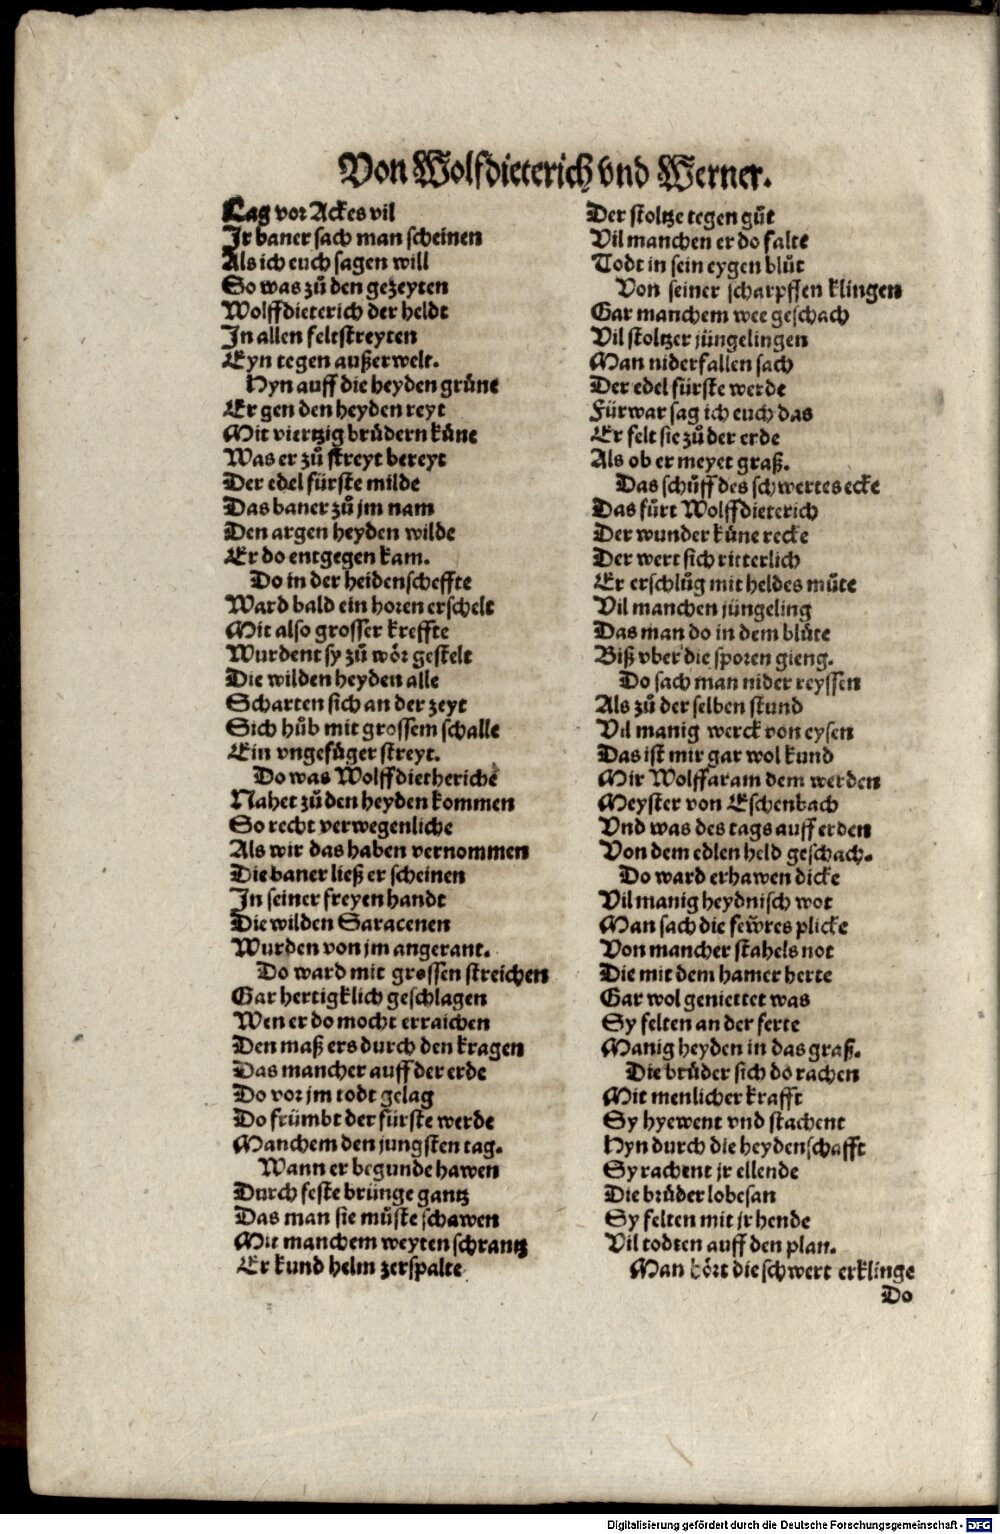 Von Wolfdieterich vnd Werner.
Lag vor Ackes vil
Jr baner sach man scheinen
Als ich euch sagen will
So was zů den gezeyten
Wolffdieterich der heldt
Jn allen feltstreyten
Eyn tegen außerwelt.
Hyn auff die heyden grüne
Er gen den heyden reyt
Mit viertzig brüdern küne
Was er zů streyt bereyt
Der edel fürste milde
Das baner zů jm nam
Den argen heyden wilde
Er do entgegen kam.
Do in der heidenscheffte
Ward bald ein horen erschelt
Mit also grosser kreffte
Wurdent sy zů wör gestelt
Die wilden heyden alle
Scharten sich an der zeyt
Sich hůb mit grossem schalle
Ein vngefüger streyt.
Do was Wolffdietheriche
Nahet zů den heyden kommen
So recht verwegenliche
Als wir das haben vernommen
Die baner ließ er scheinen
Jn seiner freyen handt
Die wilden Saracenen
Wurden von jm angerant.
Do ward mit grossen streichen
Gar hertigklich geschlagen
Wen er do mocht erraichen
Den maß ers durch den kragen
Das mancher auff der erde
Do vor jm todt gelag
Do frümbt der fürste werde
Manchem den jungsten tag.
Wann er begunde hawen
Durch feste brünge gantz
Das man sie můste schawen
Mit manchem weyten schrantz
Er kund helm zerspalte
Der stoltze tegen gůt
Vil manchen er do falte
Todt in sein eygen blůt
Von seiner scharpffen klingen
Gar manchem wee geschach
Vil stoltzer jüngelingen
Man niderfallen sach
Der edel fürste werde
Fürwar sag ich euch das
Er felt sie zů der erde
Als ob er meyet graß.
Das schůff des schwertes ecke
Das fůrt Wolffdieterich
Der wunder küne recke
Der wert sich ritterlich
Er erschlůg mit heldes můte
Vil manchen jüngeling
Das man do in dem blůte
Biß vber die sporen gieng.
Do sach man nider reyssen
Als zů der selben stund
Vil manig werck von eysen
Das ist mir gar wol kund
Mir Wolffaram dem werden
Meyster von Eschenbach
Vnd was des tags auff erden
Von dem edlen held geschach.
Do ward erhawen dicke
Vil manig heydnisch wot
Man sach die fewres plicke
Von mancher stahels not
Die mit dem hamer herte
Gar wol geniettet was
Sy felten an der ferte
Manig heyden in das graß.
Die brüder sich do rachen
Mit menlicher krafft
Sy hyewent vnd stachent
Hyn durch die heydenschafft
Sy rachent jr ellende
Die brüder lobesan
Sy felten mit jr hende
Vil todten auff den plan.
Man hört die schwert erklinge
Do
Digitalisierung gefördert durch die Deutsche Forschungsgemeinschaft - DFG